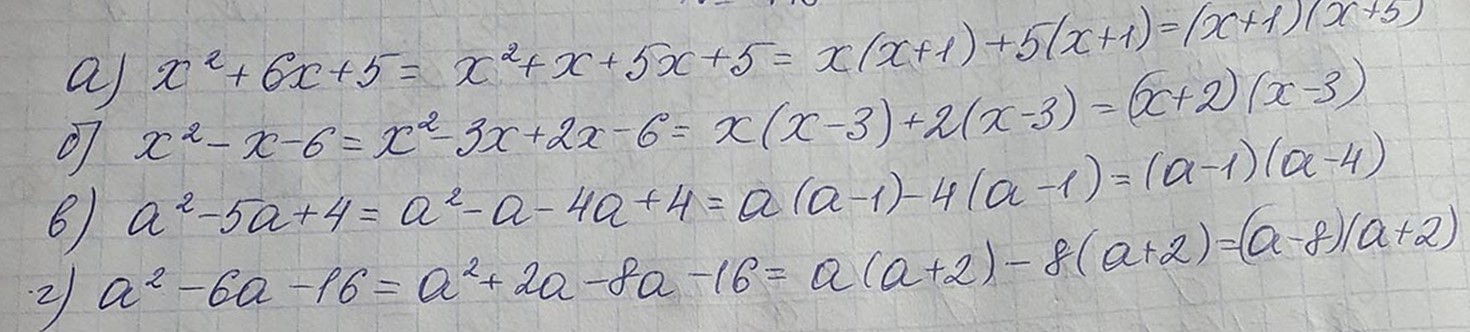 а) x² + 6x + 5 = x² + x + 5x + 5 = x(x+1) + 5(x+1) = (x+1)(x+5)
б) x² - x - 6 = x² - 3x + 2x - 6 = x(x-3) + 2(x-3) = (x+2)(x-3)
в) a² - 5a + 4 = a² - a - 4a + 4 = a(a-1) - 4(a-1) = (a-1)(a-4)
г) a² - 6a - 16 = a² + 2a - 8a - 16 = a(a+2) - 8(a+2) = (a-8)(a+2)